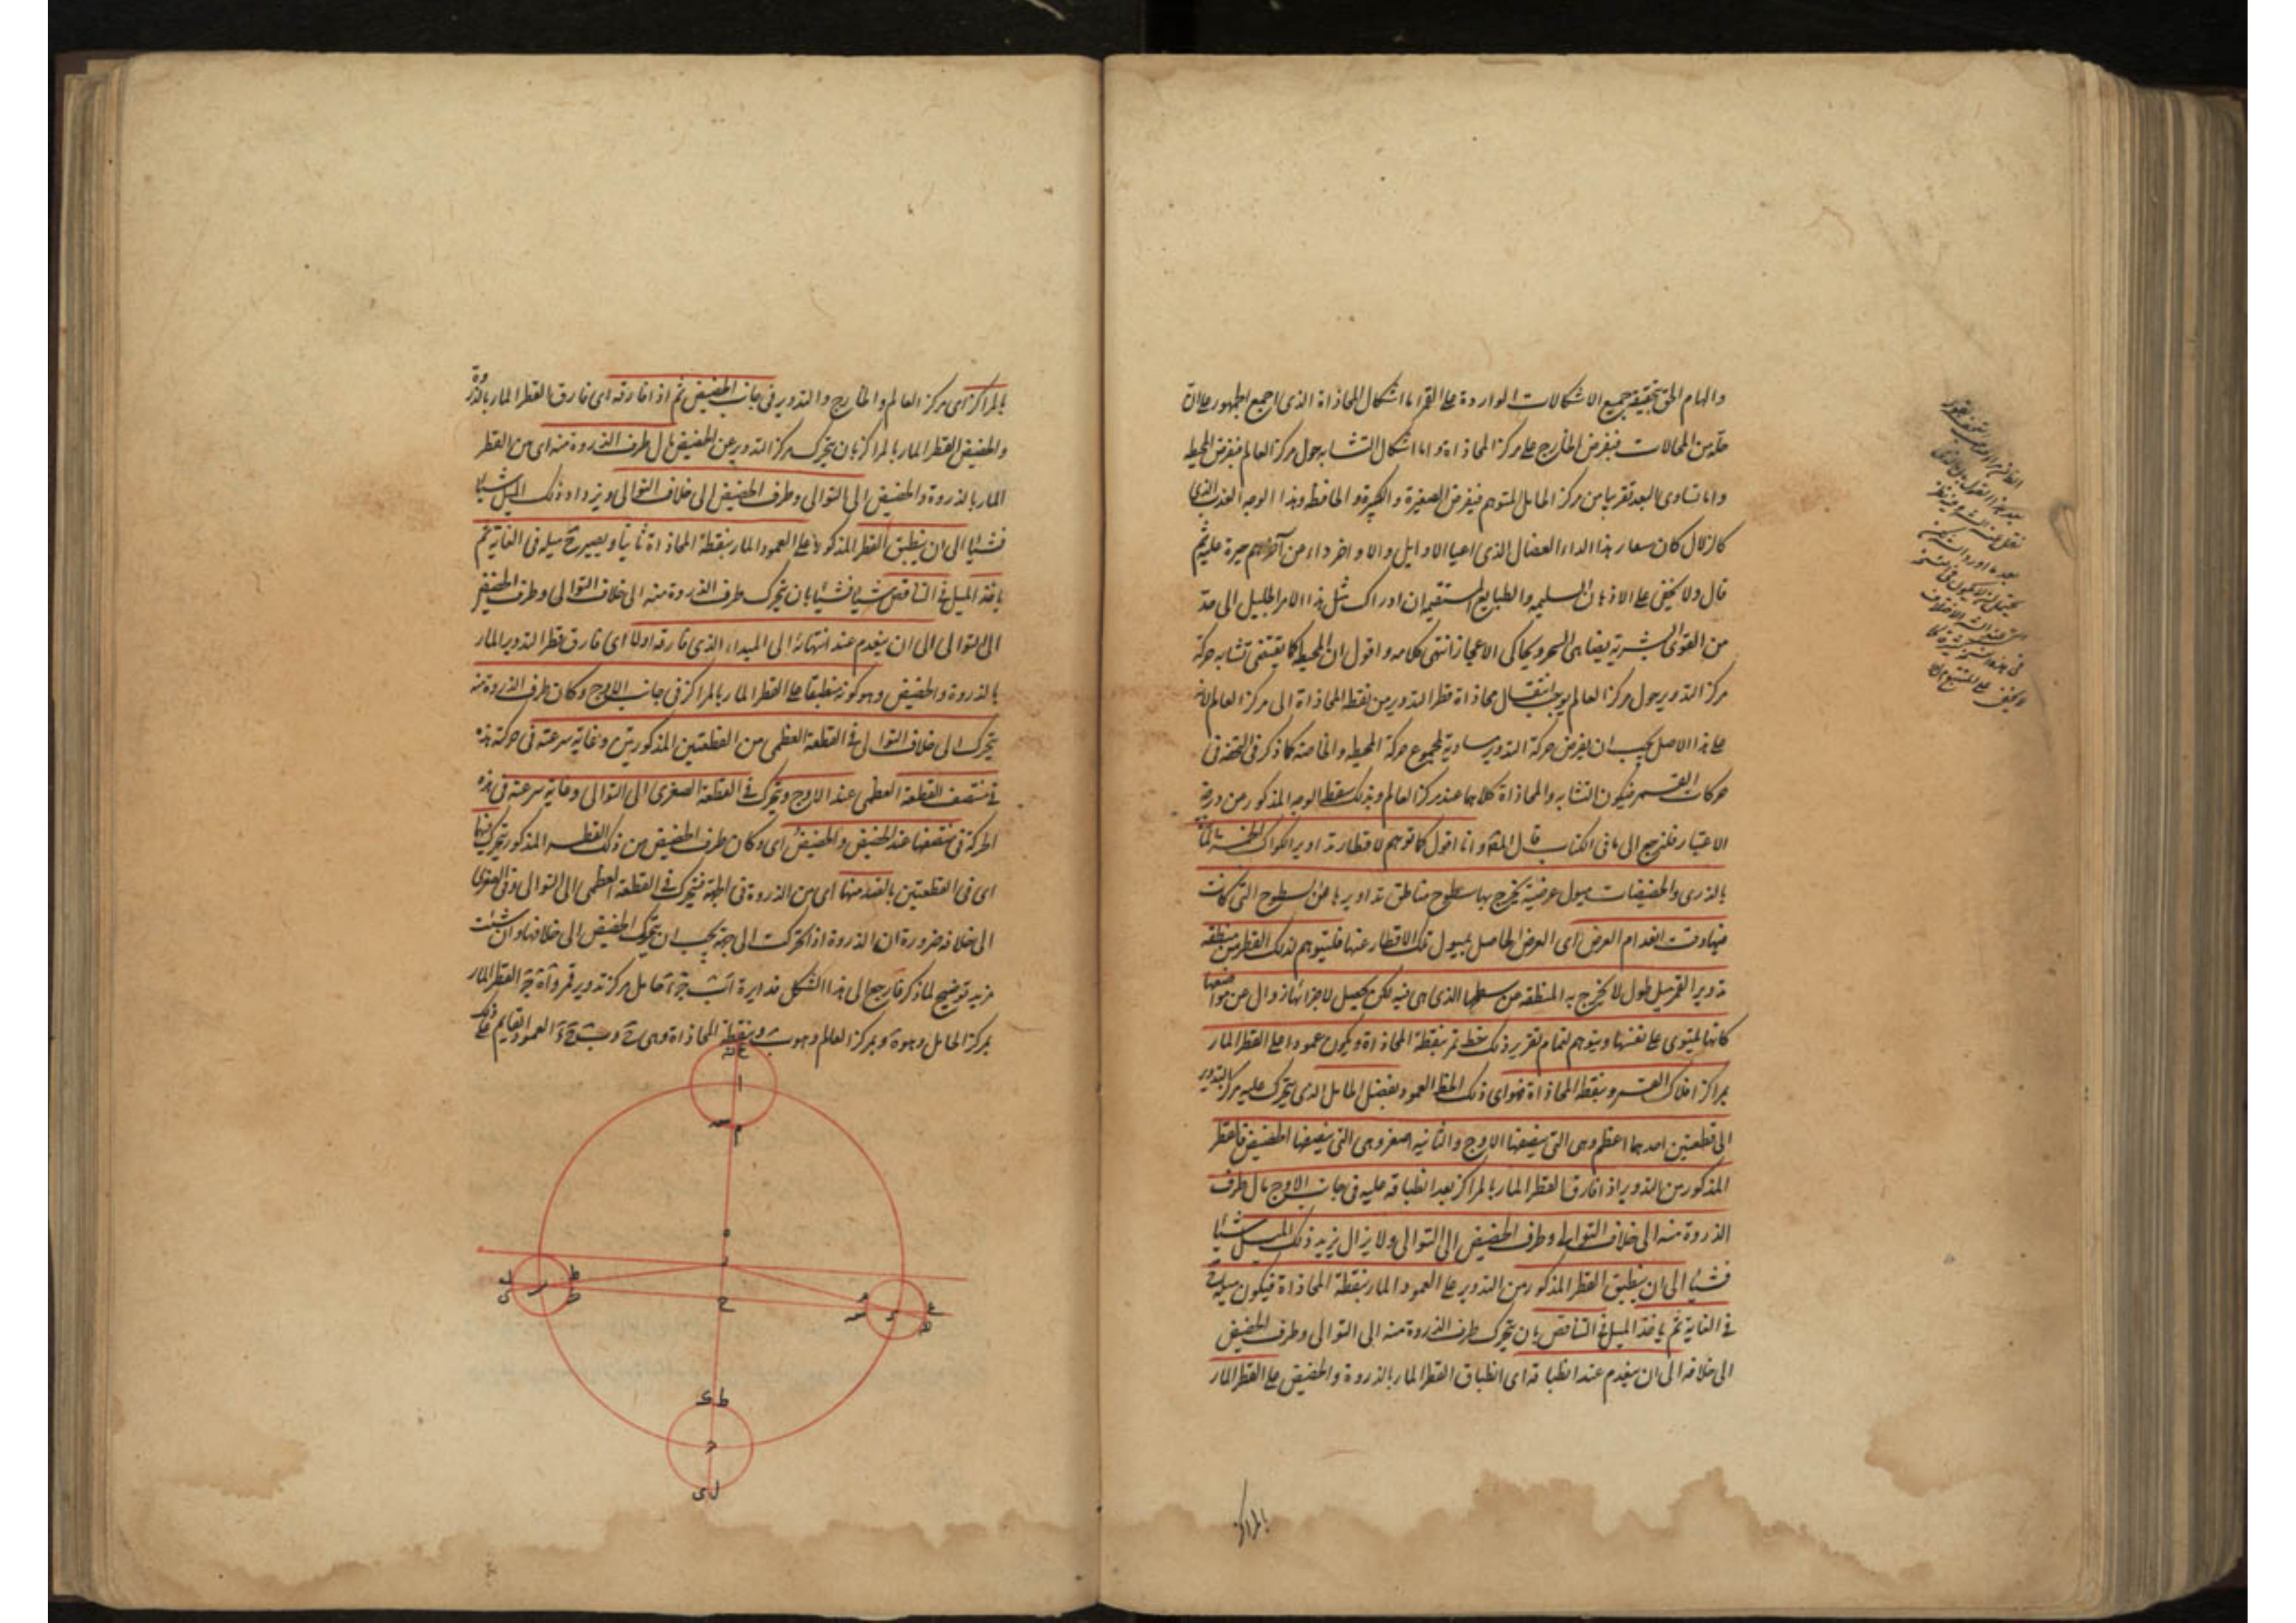 والهام الحق بتحقيقه جميع الاشكالات الواردة على القمر اما اشكال المحاذاة الذى اجمع الجمهور على ان
حله من المحالات فبفرض الخارج على مركز المحاذاة واما اشكال التشابه حول مركز العالم فبفرض المحيط
واما تساوى البعد تقريبا من مركز الحامل المتوهم فبفرض الصغيرة والكبيرة والحافظة وهذا الوجه العذب الذى
كالزلال كان سعار هذا الداء العضال الذى اعيا الاوايل والاواخر دواء من حيرة عليه ثم
قال ولا يخفى على الاذهان السليمه والطبايع المستقيمه ان ادراك مثل هذا الامر الجليل الى حد
من القوى البشرية يضاهى السحر ويحاكى الاعجاز انتهى كلامه واقول ان المحيط كما يقتضى تشابه حركة
مركز التدوير حول مركز العالم يوجب انتقال محاذاة قطر التدوير من نقطة المحاذاة الى مركز العالم لانه
على هذا الاصل يجب ان يفرض حركة التدوير مساوية لمجموع حركة المحيط والخاصة كما ذكر فى التحفه فى
حركات القمر فيكون التشابه والمحاذاة كلاهما عند مركز العالم وبذلك سقط الوجه المذكور من درجة
الاعتبار فلنرجع الى ما فى الكتاب قال المص وانا اقول كما توهم لاقطار تداوير الكواكب الخمسة المارة
بالذرى والحضيضات ميول عرضية يخرج بها سطوح مناطق تداويرها عن السطوح التى كانت
فيها وقت انعدام العرض اى العرض الحاصل بميول تلك الاقطار عنها فليتوهم لذلك القطر من منطقة
تدوير القمر ميل طول لا يخرج به المنطقة من سطحها الذى هى فيه لكن يحصل لاجزائها زوال عن مواضعها
كانها يلتوى على نفسها ويتوهم لتمام تقرير ذلك خط يمر بنقطة المحاذاة ويكون عمودا على القطر المار
بمراكز افلاك القمر وبنقطة المحاذاة فهو اى ذلك الخط العمود يفصل الحامل الذى يتحرك عليه مركز التدوير
الى قطعتين احدهما اعظم وهى التى ينصفها الاوج والثانيه اصغر وهى التى ينصفها الحضيض فالقطر
المذكور من التدوير اذا فارق القطر المار بالمراكز بعد انطباقه عليه فى جانب الاوج مال طرف
الذروة منه الى خلاف التوالى وطرف الحضيض الى التوالى ولا يزال يزيد ذلك الميل شيئا
فشيئا الى ان ينطبق القطر المذكور من التدوير على العمود المار بنقطة المحاذاة فيكون ميله ح
فى الغاية ثم ياخذ الميل فى التناقص بان يتحرك طرف الذروة منه الى التوالى وطرف الحضيض
الى خلافه الى ان ينعدم عند انطباقه اى انطباق القطر المار بالذروة والحضيض على القطر المار
بالمراكز
بالمراكز اى مركز العالم والخارج والتدوير فى جانب الحضيض ثم اذا فارقه اى فارق القطر المار بالذروة
والحضيض القطر المار بالمراكز بان يتحرك مركز التدوير عن الحضيض مال طرف الذروة منه اى من القطر
المار بالذروة والحضيض الى التوالى وطرف الحضيض الى خلاف التوالى ويزداد ذلك الميل شيئا
فشيئا الى ان ينطبق القطر المذكور على العمود المار بنقطة المحاذاة ثانيا ويصير ح ميله فى الغاية ثم
ياخذ الميل فى التناقص شيئا فشيئا بان يتحرك طرف الذروة منه الى خلاف التوالى وطرف الحضيض
الى التوالى الى ان ينعدم عند انتهائه الى المبداء الذى فارقه اولا اى فارق قطر التدوير المار
بالذروة والحضيض وهو كونه منطبقا على القطر المار بالمراكز فى جانب الاوج وكان طرف الذروة منه
يتحرك الى خلاف التوالى فى القطعة العظمى من القطعتين المذكورتين وغاية سرعته فى حركته هذه
فى منتصف القطعة العظمى عند الاوج ويتحرك فى القطعة الصغرى الى التوالى وغاية سرعته فى هذه
الحركة فى منتصفها عند الحضيض والحضيض اى وكان طرف الحضيض من ذلك القطر المذكور يتحرك فيهما
اى فى القطعتين بالضد منها اى من الذروة فى الجهة فيتحرك فى القطعة العظمى الى التوالى وفى الصغرى
الى خلافه ضرورة ان الذروة اذا تحركت الى جهة يجب ان يتحرك الحضيض الى خلافها وان شئت
مزيد توضيح لما ذكر فارجع الى هذا الشكل فدايرة اب ج د حامل مركز تدوير قمر و ا ه ج القطر المار
بمركز الحامل وهو ه وبمركز العالم وهو ز وبنقطة المحاذاة وهى ح و ب ح د العمود القايم على ذلك
ا
م
ه
ز
ح
ط ك
ل ى